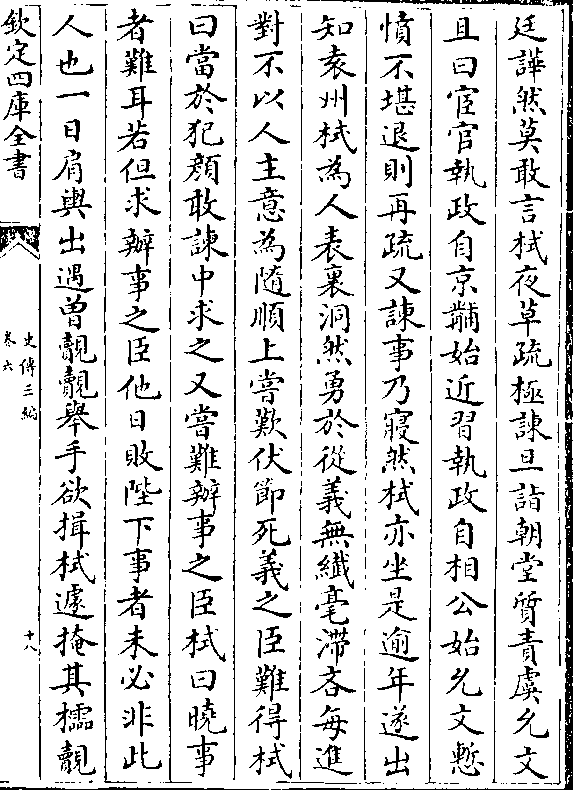 廷譁然莫敢言栻夜草疏極諫旦詣朝堂質責虞允文
且曰宦官執政自京黼始近習執政自相公始允文慙
憤不堪退則再疏又諫事乃寢然栻亦坐是逾年遂出
知袁州栻為人表裏洞然勇於從義無纎毫滯吝每進
對不以人主意為随順上嘗歎伏節死義之臣難得栻
曰當於犯顔敢諫中求之又嘗難辦事之臣栻曰曉事
者難耳若但求辦事之臣他日敗陛下事者未必非此
人也一日肩輿出遇曽覿覿舉手欲揖栻遽掩其㯕覿
欽定四庫全書
史傳三編
卷六
十八